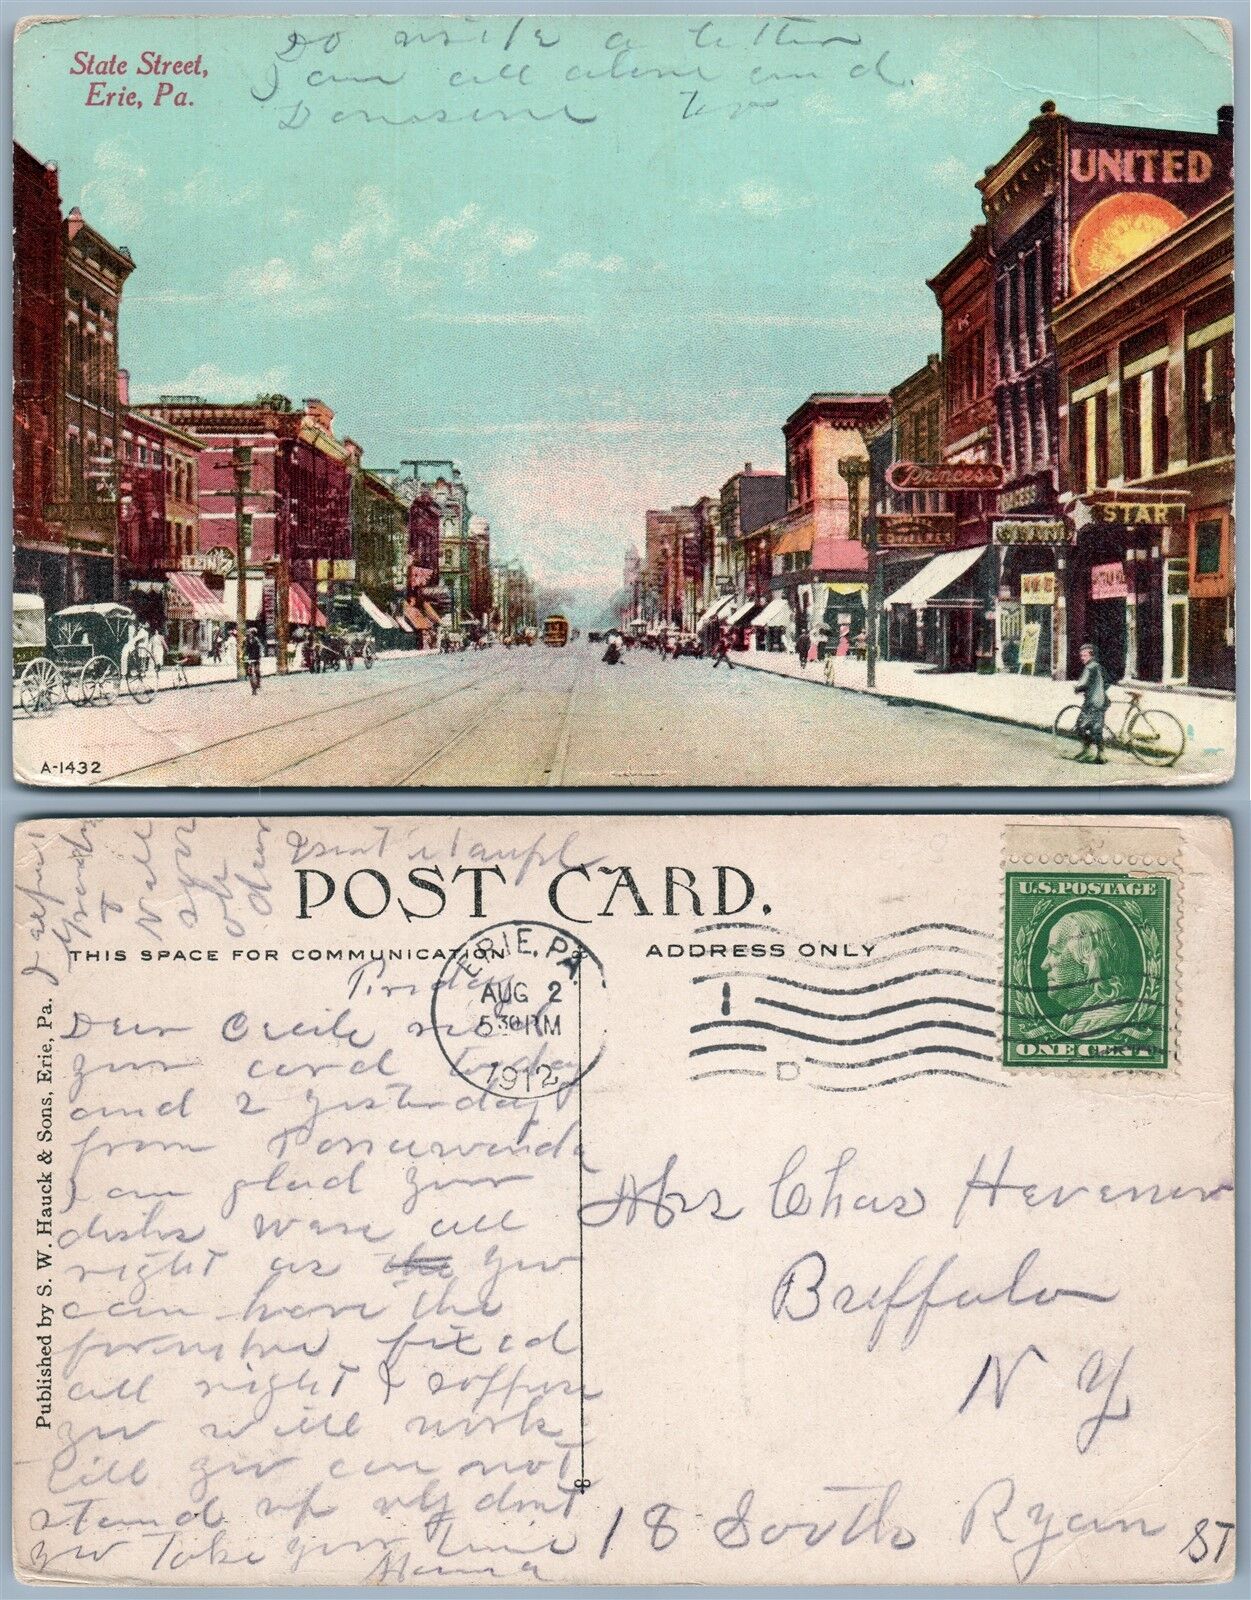 State Street,
Erie, Pa.
Do write a letter
I am all alone and
UNITED
Princess
PRINCESS
GRAND
STAR
A-1432
POST CARD.
THIS SPACE FOR COMMUNICATION
ADDRESS ONLY
ERIE, PA.
AUG 2
5 30 PM
1912
D
U.S. POSTAGE
ONE CENT
Published by S. W. Hauck & Sons, Erie, Pa.
Dear Cecile
your card today
and 2 yesterday
from Tonawanda
I am glad your
dishes were all
right as the you
can have the
fixed
all right & suppose
you will work
till you can not
stand up why dont
you Take your time
Mama
Mrs Chas Hevener
Buffalo
N Y
18 South Ryan ST